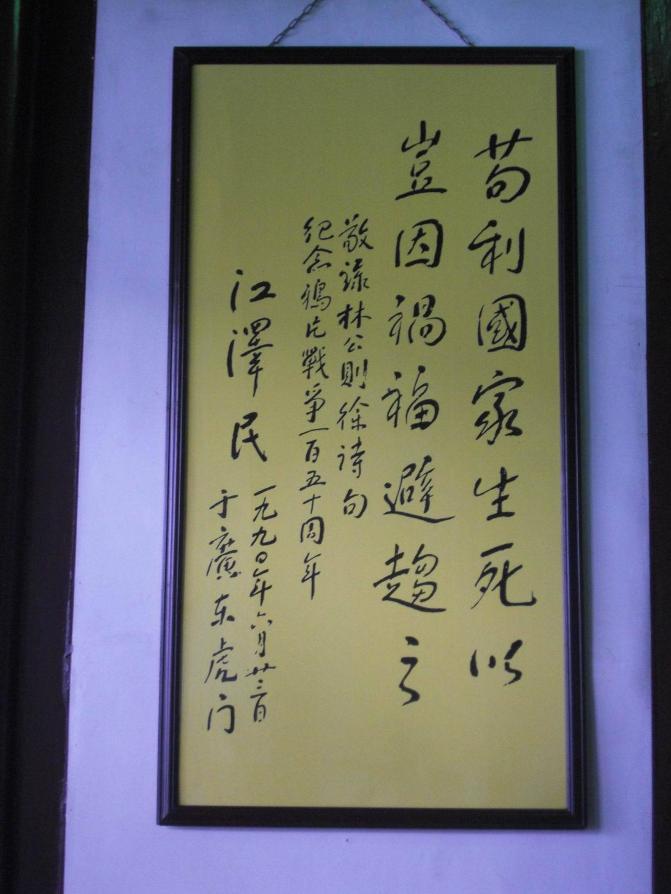 苟利國家生死以
豈因禍福避趨之
敬錄林公則徐詩句
紀念鴉片戰爭一百五十周年
江澤民
一九九〇年六月廿三日
于廣东虎门